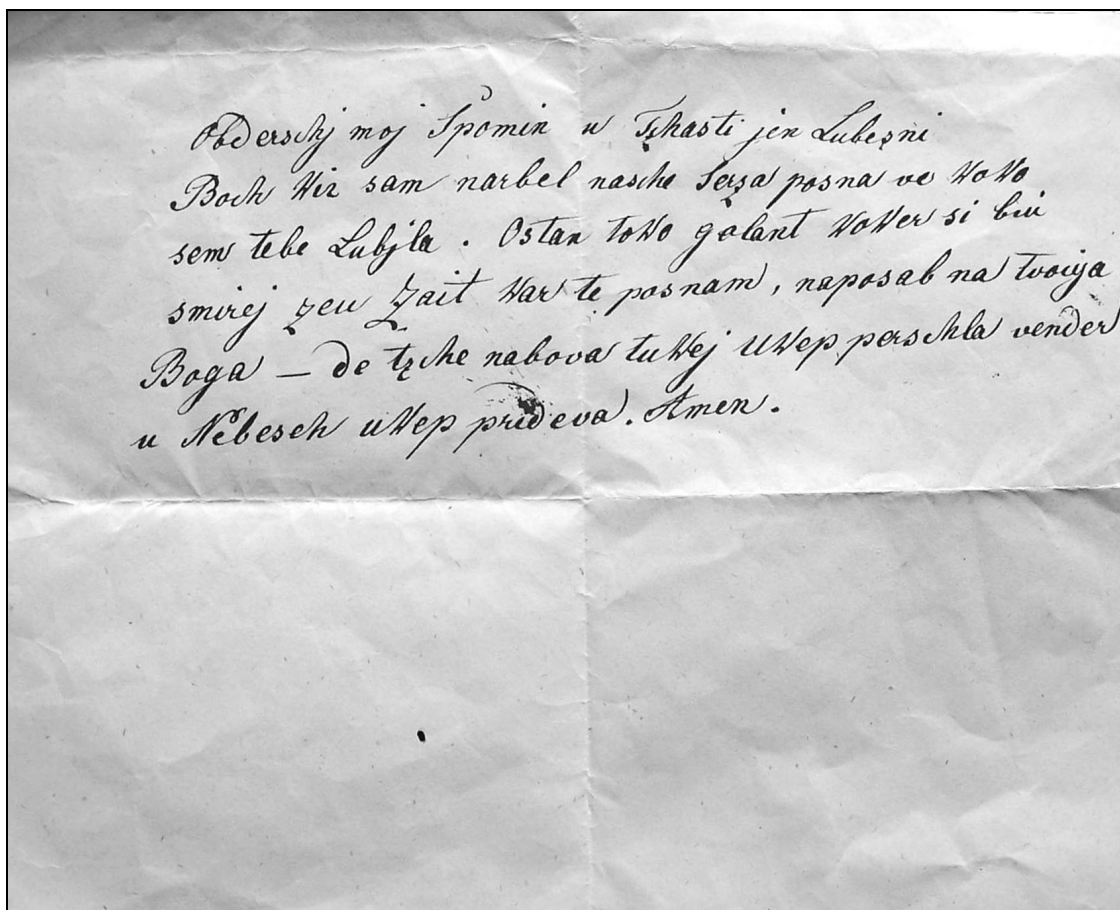 Obderschj moj Spomin u Tzhasti jen Lubesni
Boch kir sam narbel nasche Serza posna ve koko
sem tebe Lubjla. Ostan toko galant koker si biu
smirej zeu Zait kar te posnam, naposab na tvoija
Boga – de tzhe nabova tukej ukep perschla vender
u Nebeseh ukep prideva. Amen.